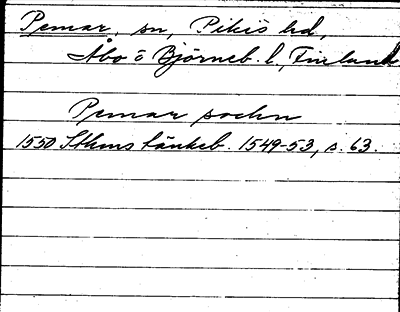 Pemar, sn, Pikis hd,
Åbo o Björneb. l, Finland
Pemar sochn
1550 Sthms tänkeb. 1549-53, s. 63.